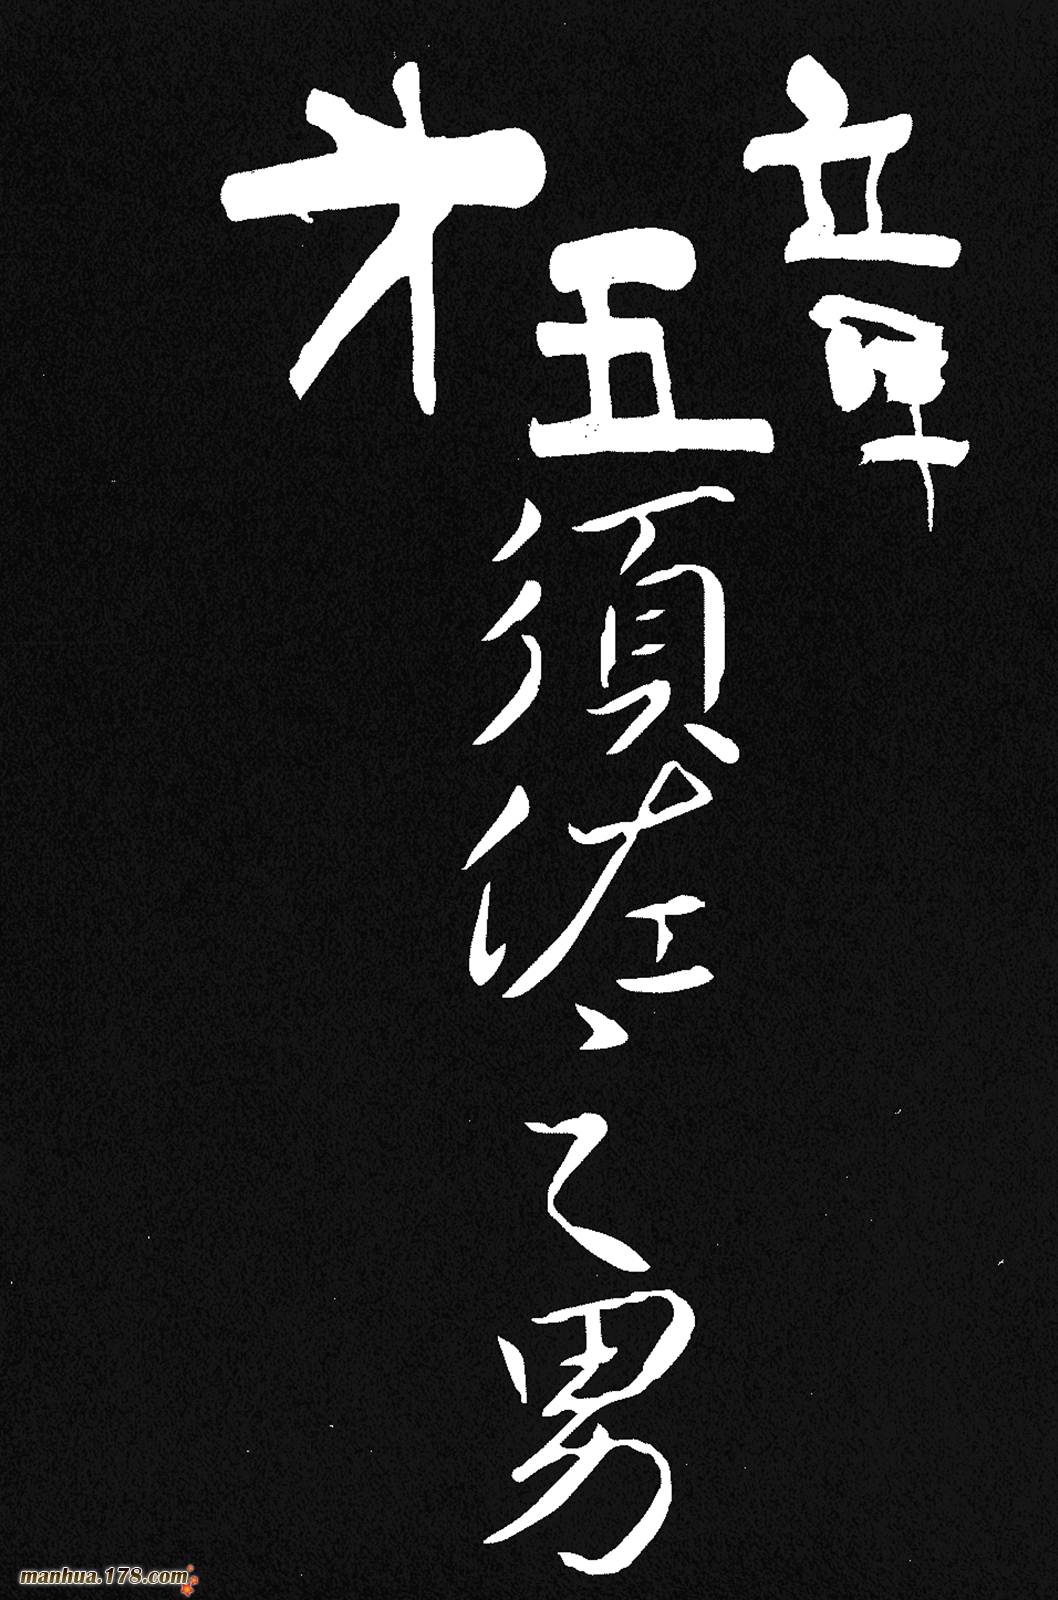 才五章
須佐之男
manhua.178.com